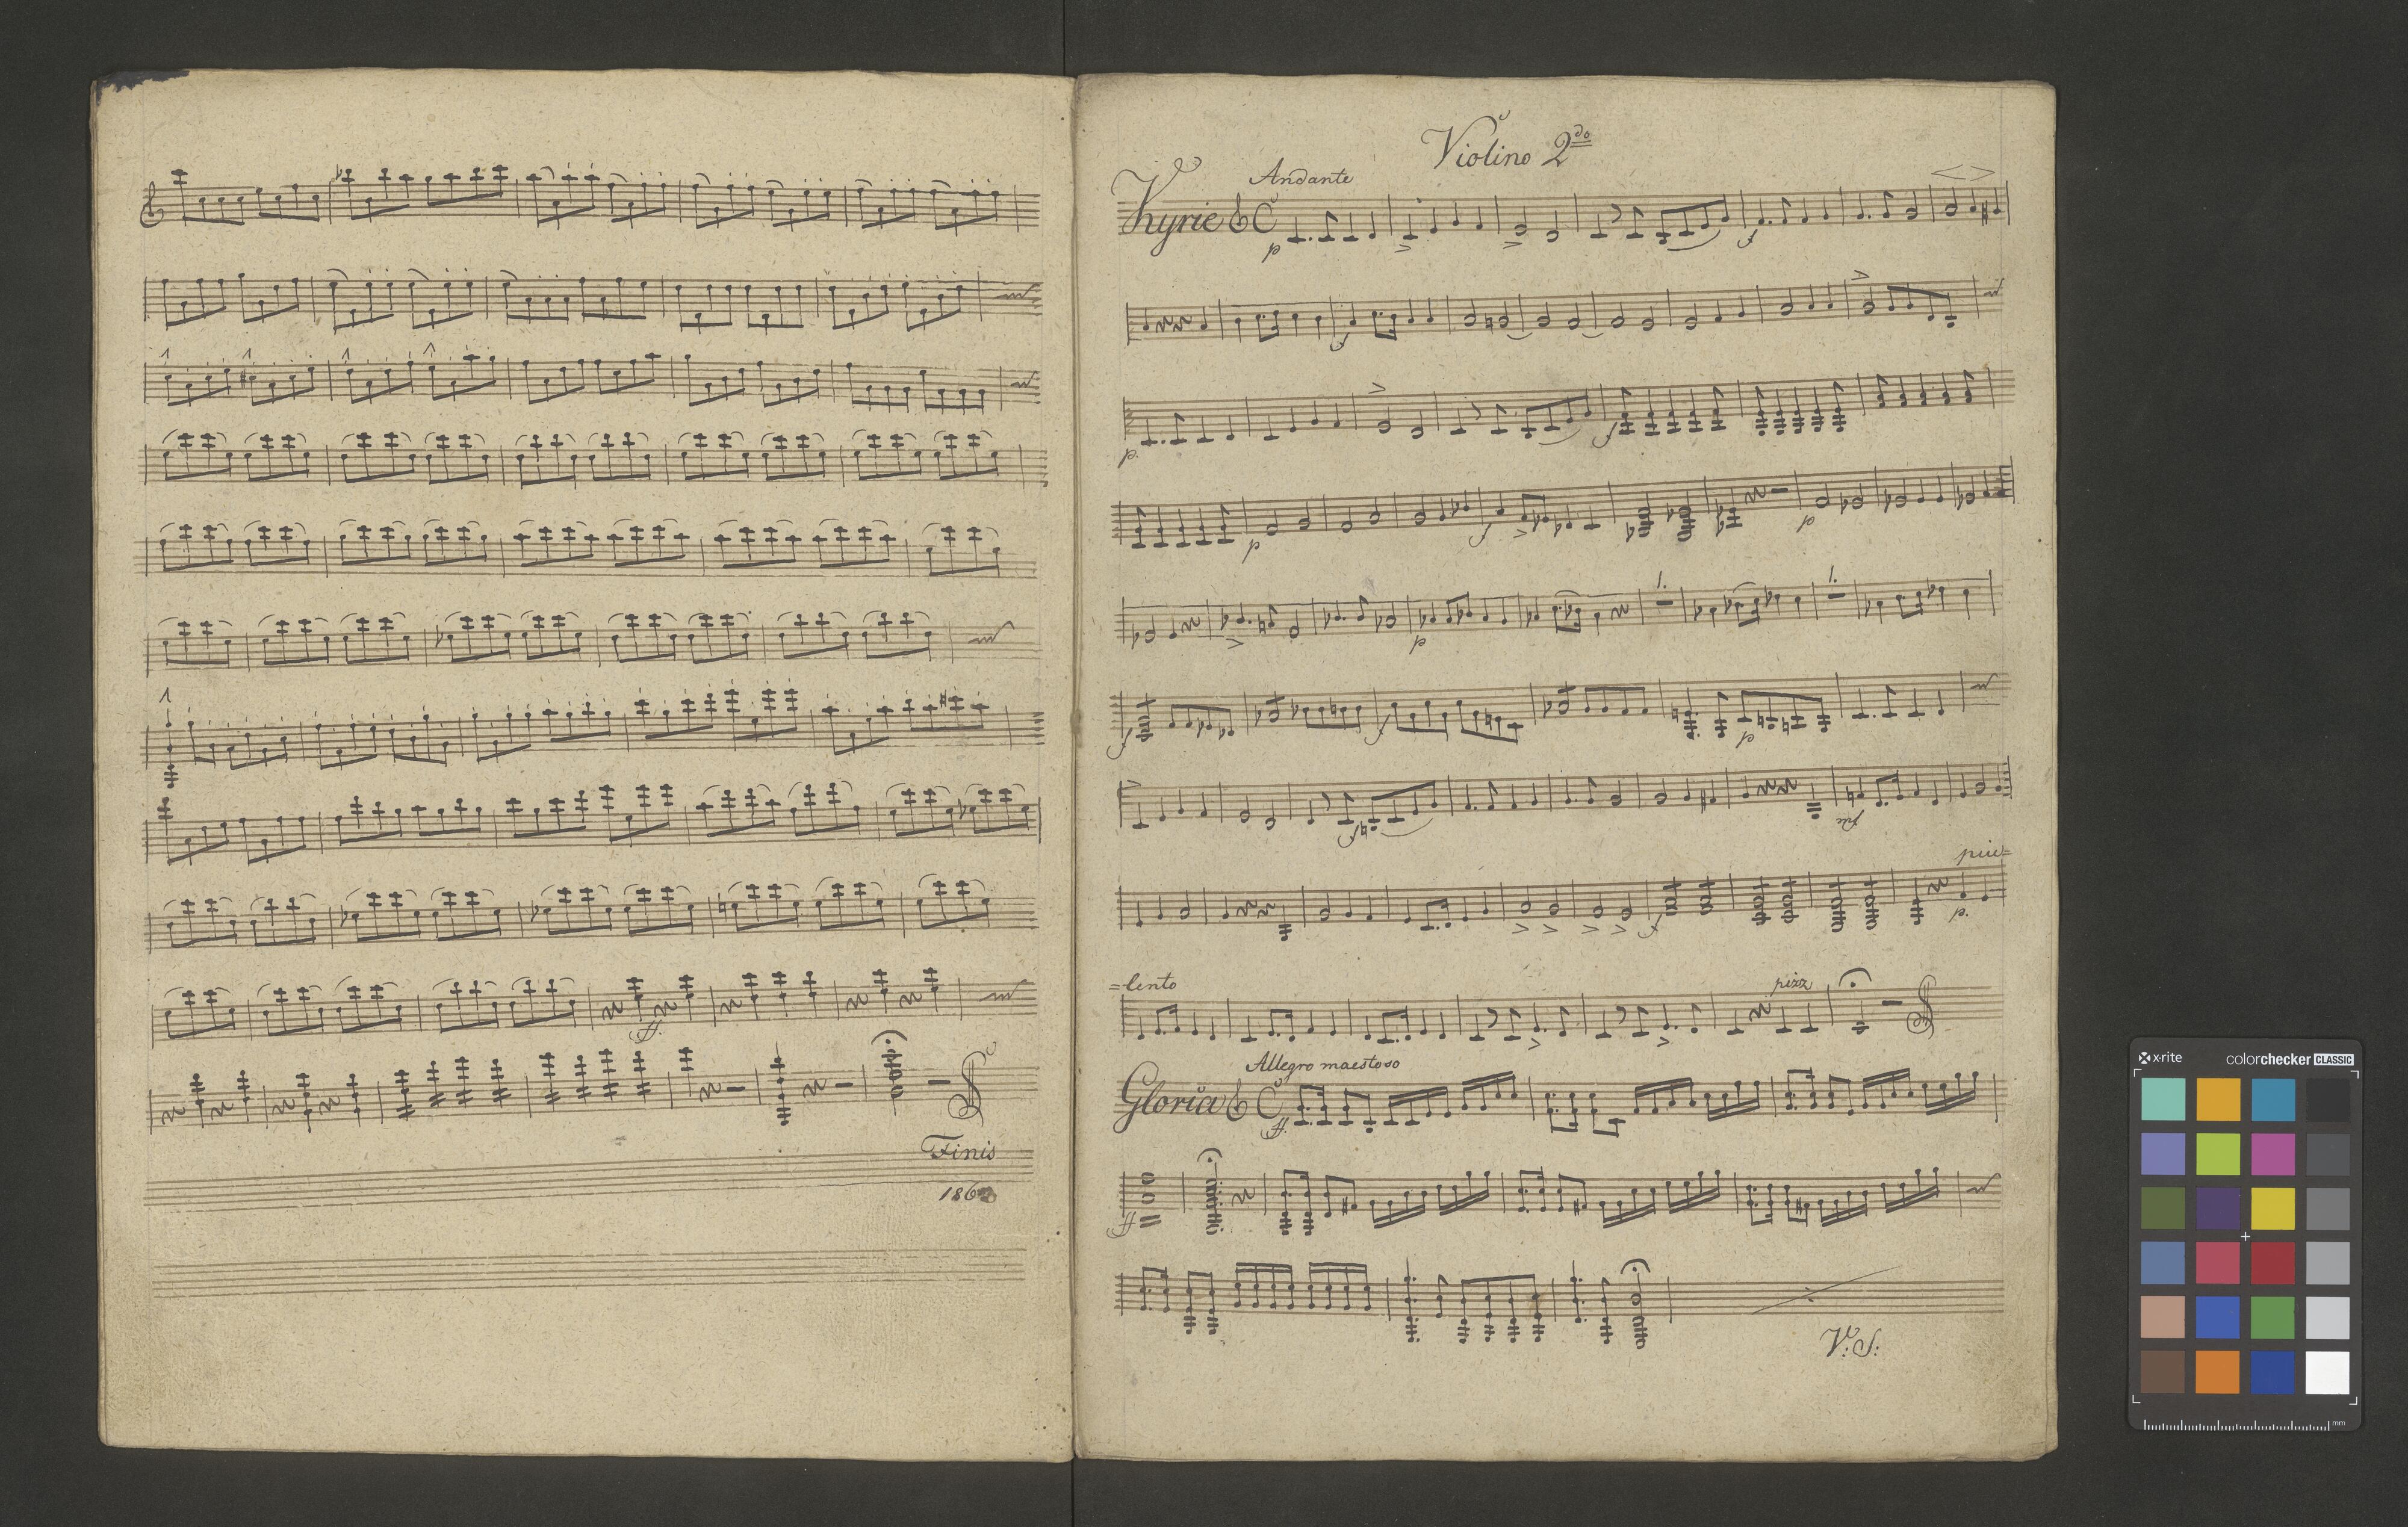 Finis
Violino 2do
Andante
Kyrie
p
f
f
p.
f
p
f
p
p
1.
1.
f
f
p
f
p
piu=
f
p.
=lento
pizz
Allegro maestoso
Gloria
ff.
ff
V: S:
ff.
x-rite
colorchecker CLASSIC
mm